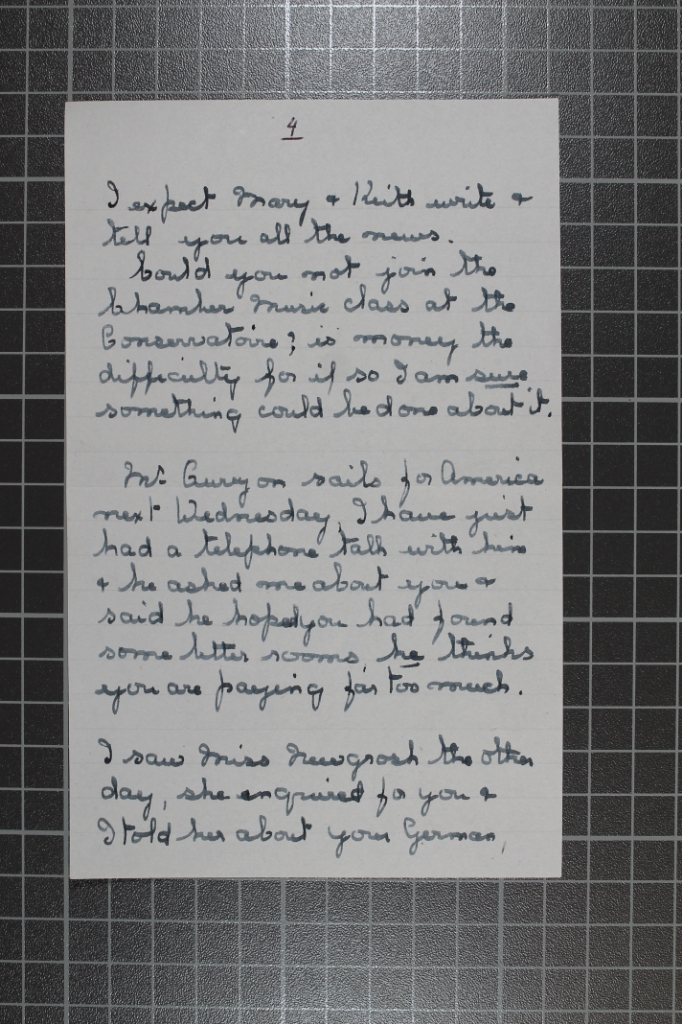 4
I expect Mary & Keith write &
tell you all the news.
Could you not join the
Chamber Music class at the
Conservatoire; is money the
difficulty for if so I am sure
something could be done about it.
Mr. Curzon sails for America
next Wednesday, I have just
had a telephone talk with him
& he asked me about you &
said he hoped you had found
some better rooms, he thinks
you are paying far too much.
I saw Miss Newgrosh the other
day, she enquired for you &
I told her about your German,